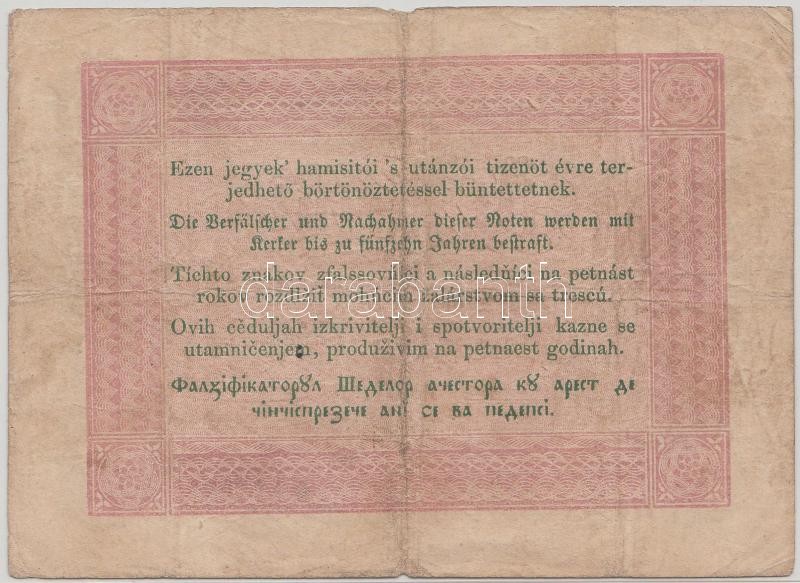 Ezen jegyek' hamisitói 's utánzói tizenöt évre ter-
jedhető börtönöztetéssel büntettetnek.
Die Verfälscher und Nachahmer dieser Noten werden mit
Kerker bis zu fünfzehn Jahren bestraft.
Tíchto znákov zfalssovňíci a následňíci na petnást
rokov rozdlžit mohúcím žalárstvom sa trescú.
darabanth
Ovih cěduljah izkrivitelji i spotvoritelji kazne se
utamničenjem, produživim na petnaest godinah.
Фалціфікаторꙋл Шеделор ачестора кꙋ арест де
чінчіспрезече ані се ва педепсі.